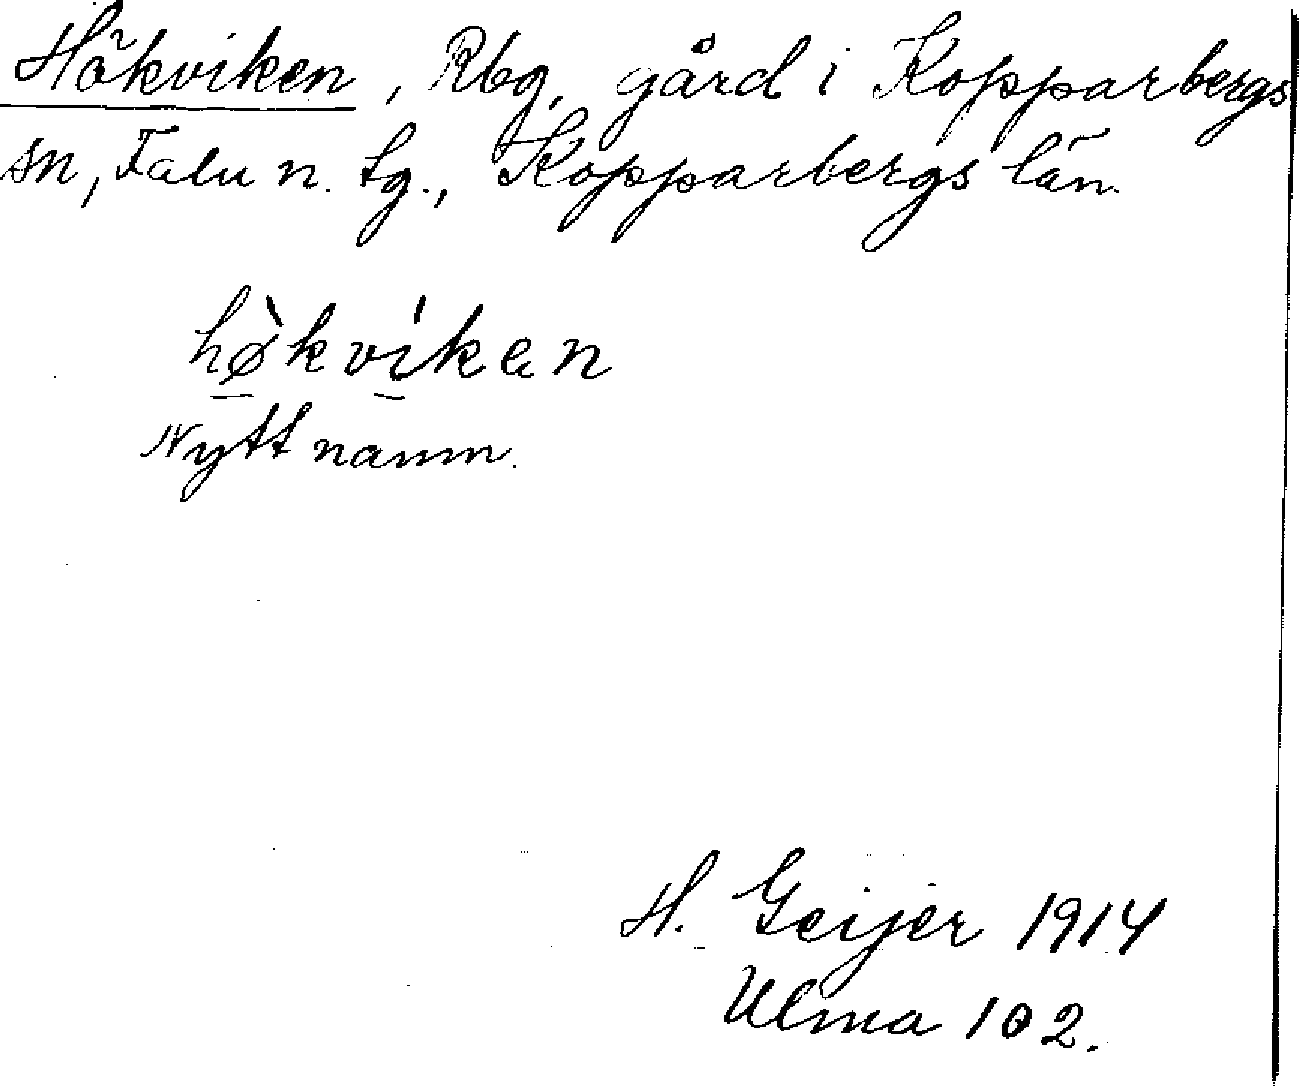 Hökviken, Rbg, gård i Kopparbergs
sn, Falu n. tg., Kopparbergs län.
hø̀kvíken
Nytt namn.
H. Geijer 1914
Ulma 102.